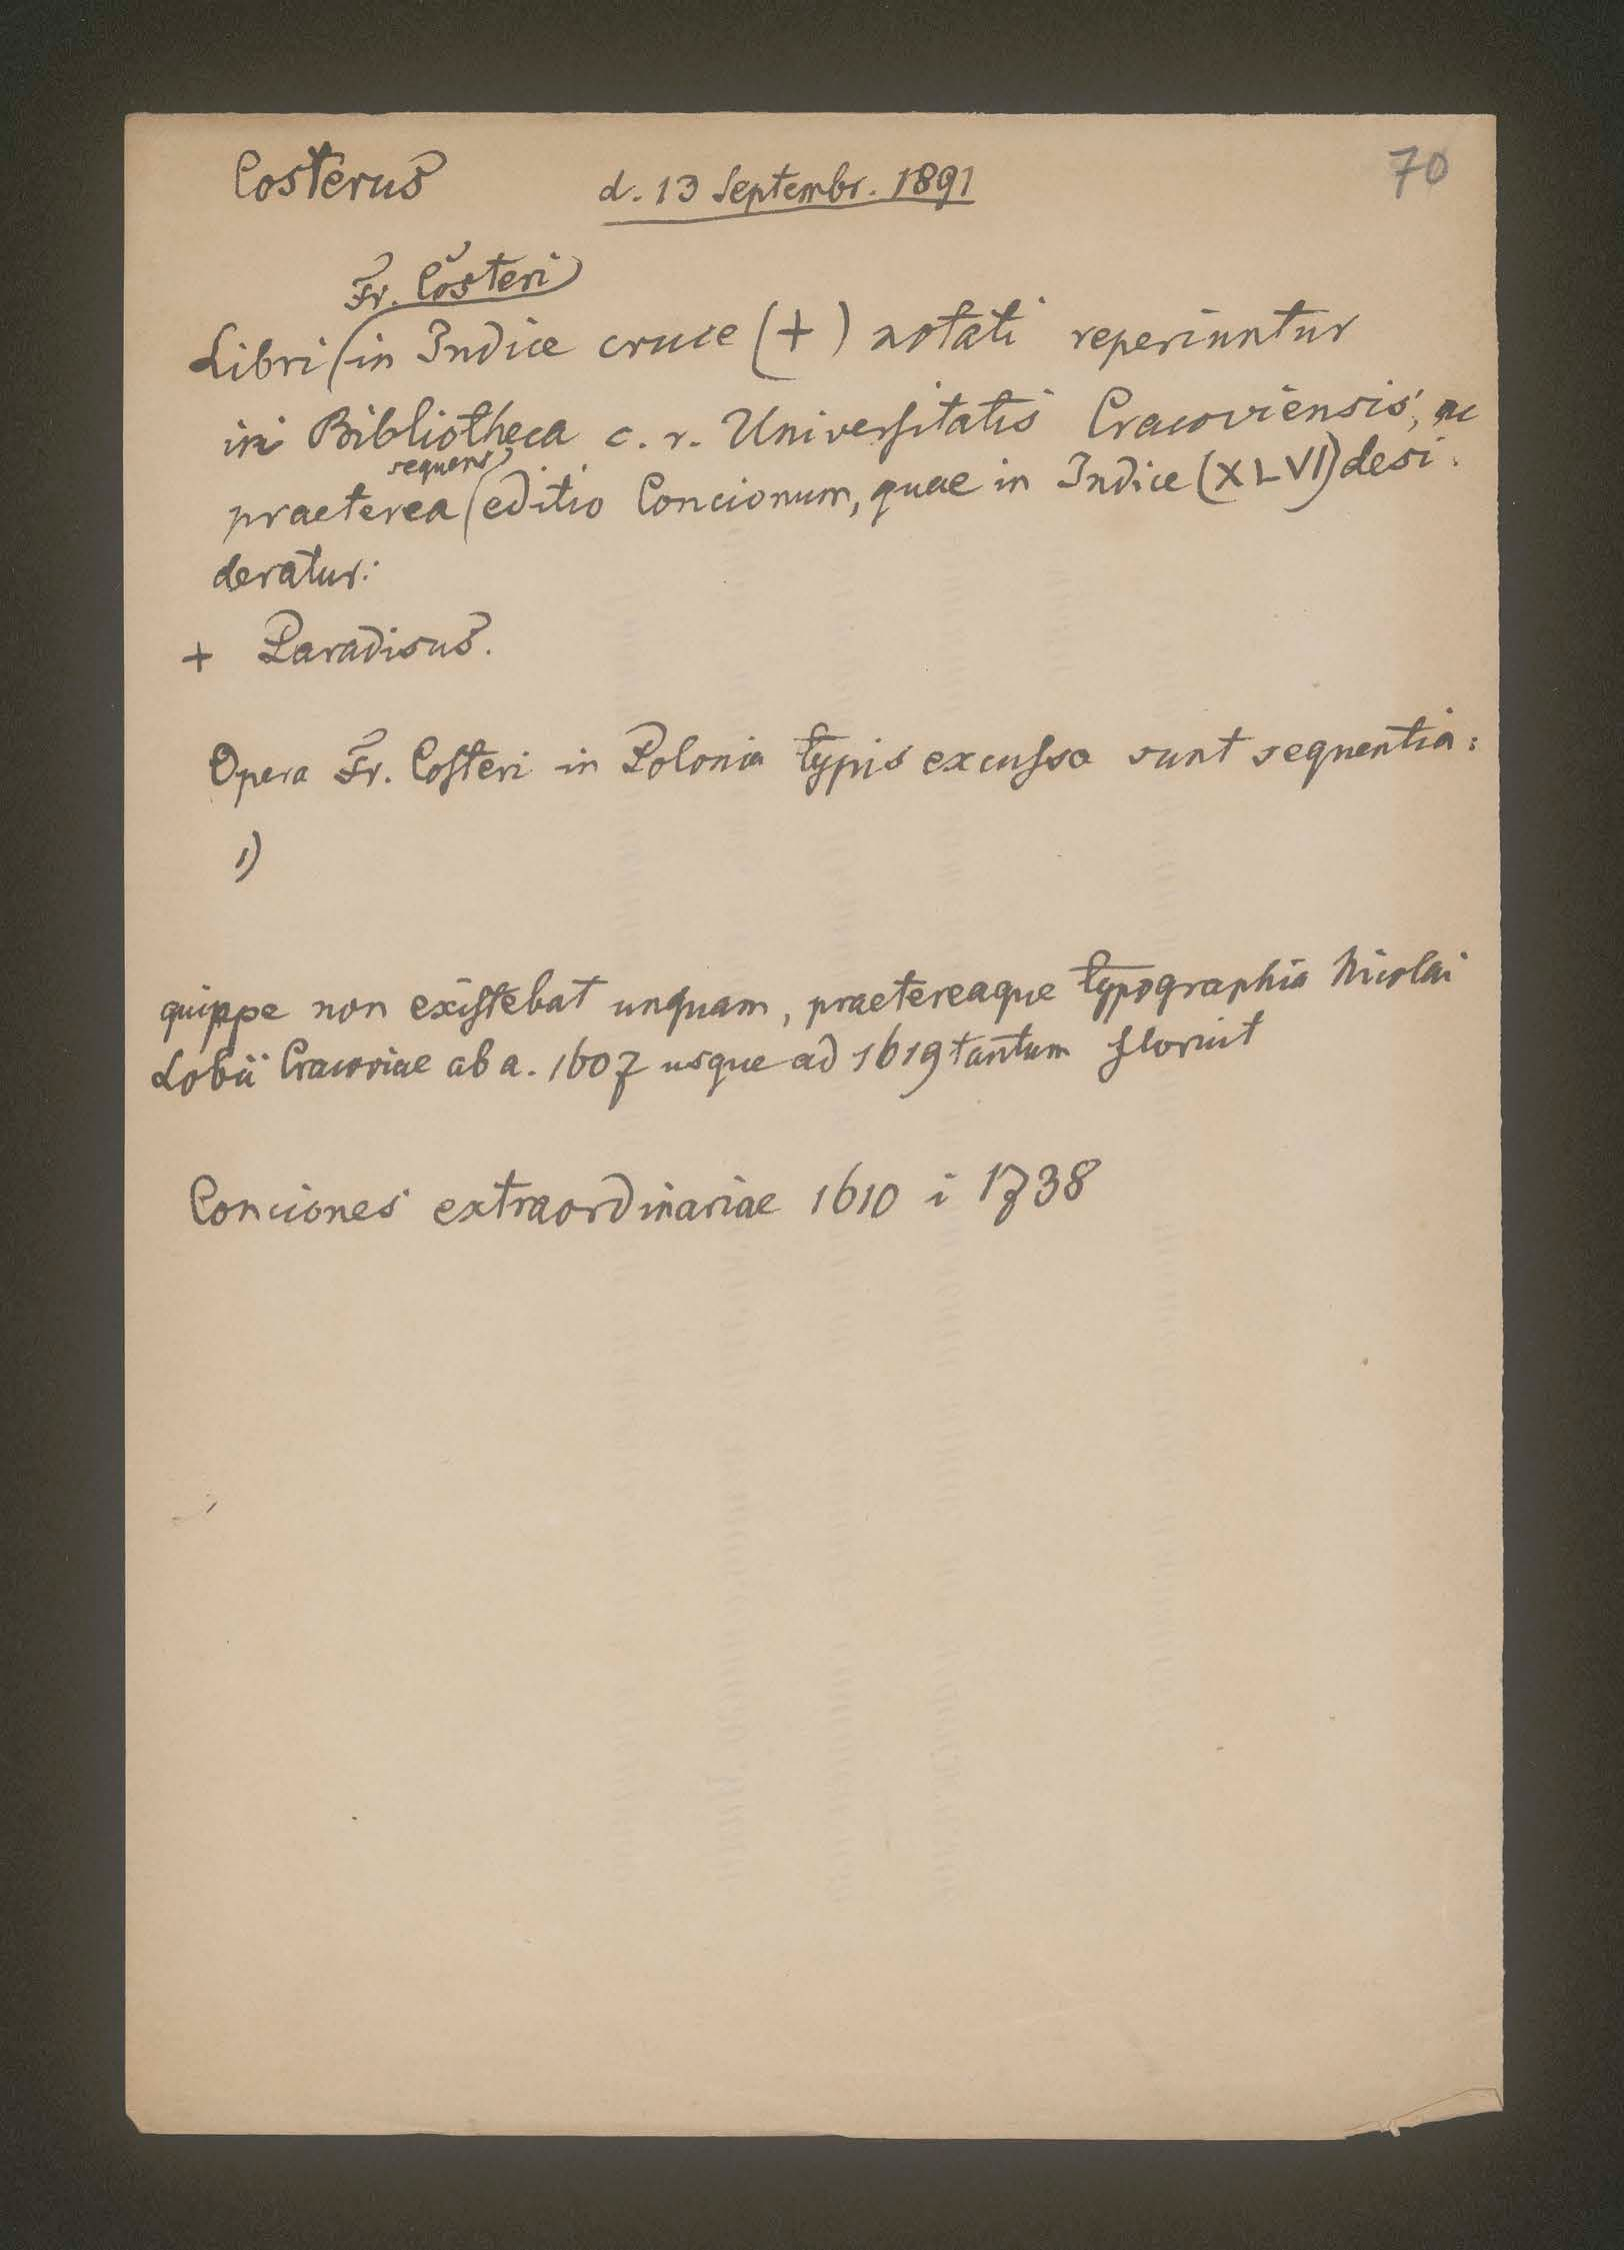 Costerus d. 13 Septembr. 1891 70
Fr. Costeri
Libri in Indice cruce (+) notati reperiuntur
in Bibliotheca c. r. Universitatis Cracoviensis, ac
sequens
praeterea editio Concionum, quae in Indice (XLVI) desi-
deratur:
+ Paradisus.
Opera Fr. Costeri in Polonia typis excussa sunt sequentia:
1)
quippe non existebat unquam, praetereaque typographia Nicolai
Lobii Cracoviae ab a. 1607 usque ad 1619 tantum floruit
Conciones extraordinariae 1610 i 1738